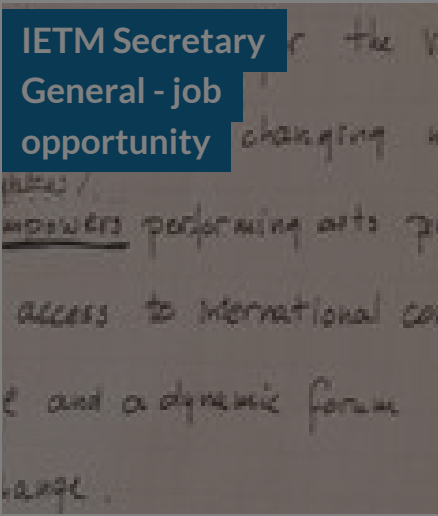 IETM Secretary
General - job
opportunity
the
changing
empowers performing arts
access to international
and a dynamic forum